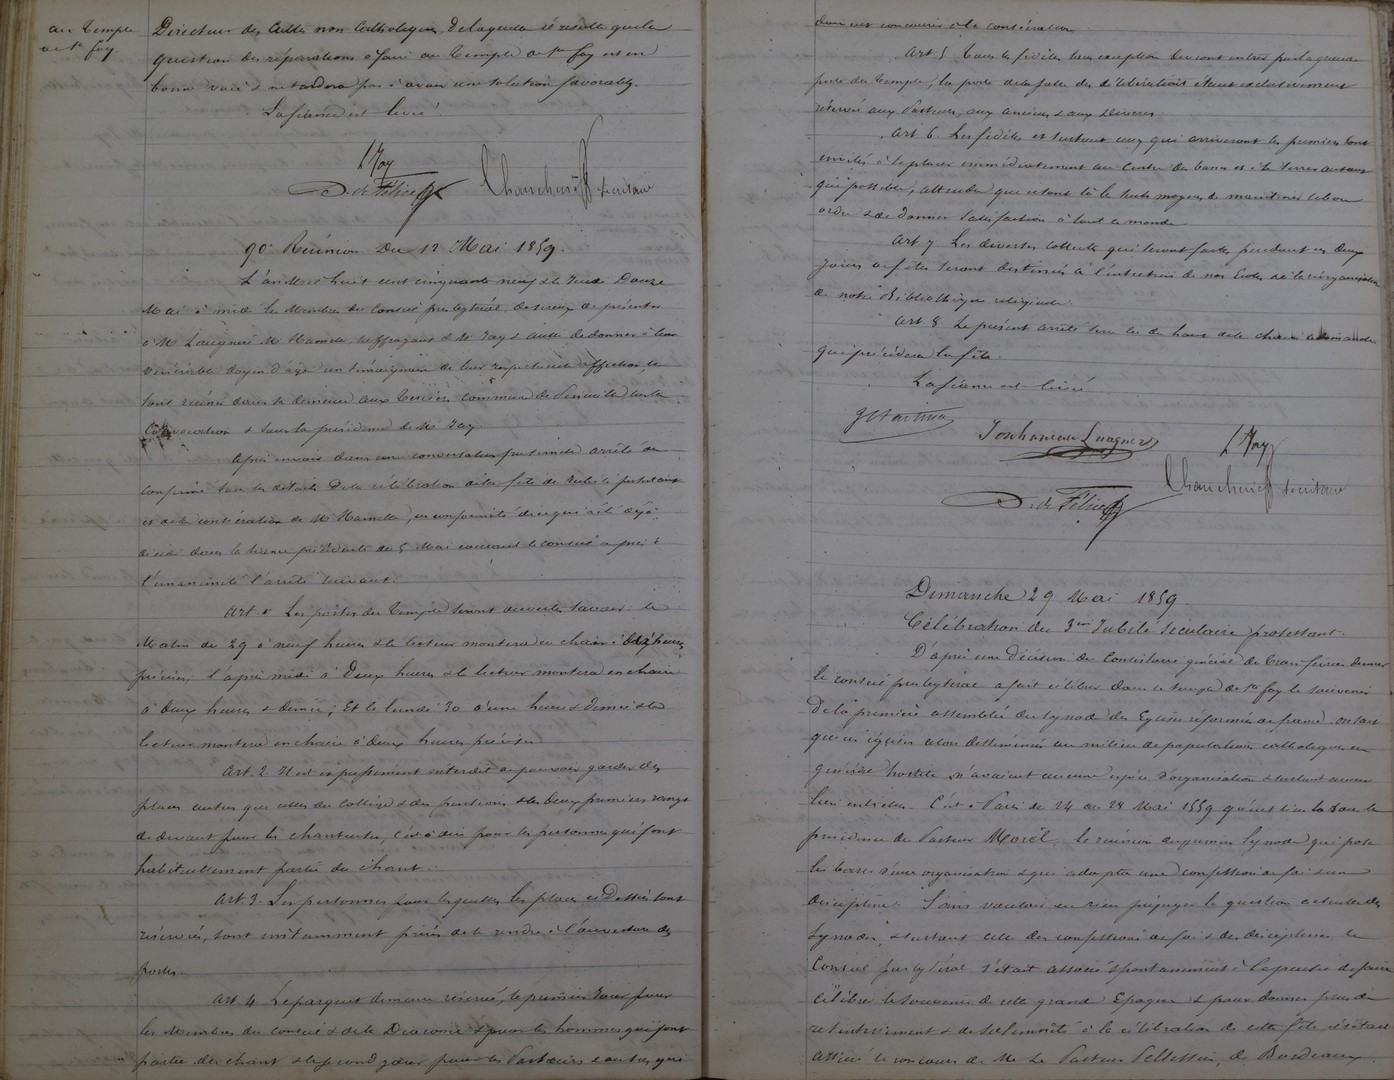 au Temple
de Ste foy.
Directeur des Cultes non Catholiques, de laquelle il résulte que la
question des réparations à faire au Temple de Ste foy est en
bonne voie & ne tardera pas à avoir une solution favorable.
La séance est levée.
L Jay
D. de Félice
secrétaire
90e Réunion Du 12 Mai 1859.
L'an dix huit cent cinquante neuf & le Jeudi Douze
Mai à midi les Membres du Conseil presbytéral désireux de présenter
à Mr Hamelle suffragant de Mr Jay & aussi de donner à leur
vénérable doyen d'âge un témoignage de leur respectueuse affection se
sont réunis dans la demeure aux commune de sur la
Convocation & sous la présidence de Mr Jay
Après avoir dans une conversation arrêté ou
confirmé tous les détails de la célébration de la fête du Jubilé protestant
et de la consécration de Mr Hamelle, en conformité de ce qui a été déjà
décidé dans la séance précédente du 5 Mai courant le conseil a pris à
l'unanimité l'arrêté suivant.
Art. 1 Les portes du Temple seront ouvertes savoir: le
Matin du 29 à neuf heures & le lecteur montera en chaire à heures
précises; l'après midi à Deux heures & le lecteur montera en chaire
à deux heures & demie; Et le lundi 30 à une heure & demie & le
lecteur montera en chaire à deux heures précises
Art. 2. Il est expressément interdit de pouvoir garder des
places autres que celles du collège & des pensions & les deux premiers rangs
de devant pour les chanteuses, c'est à dire pour les personnes qui font
habituellement partie du chant.
Art. 3. Les personnes pour lesquelles les places ci dessus sont
réservées, sont instamment priées de se rendre à l'ouverture des
portes.
Art. 4 Le parquet demeure réservé, le premier Jour pour
les Membres du Conseil & de la Diaconie & pour les hommes qui font
partie du chant & le second jour pour les Pasteurs & autres qui
doivent concourir à la consécration.
Art. 5 Tous les fidèles sans exception devront entrer par la grande
porte du Temple, la porte de la salle des délibérations étant exclusivement
réservée aux Pasteurs, aux anciens & aux Diacres.
Art. 6. Les fidèles et surtout ceux qui arriveront les premiers sont
invités à se placer immédiatement au Centre des bancs et à se serrer autant
que possible, attendu que c'est là le seul moyen de maintenir le bon
ordre & de donner satisfaction à tout le monde
Art. 7 Les diverses collectes qui seront faites pendant ces deux
jours de fêtes seront destinées à l'entretien de nos Ecoles & à la réorganisation
de notre Bibliothèque religieuse.
Art. 8. Le présent arrêté sera lu du haut de la chaire
qui précèdera la fête
La séance est levée
L Jay
secrétaire
D. de Félice
Dimanche 29 Mai 1859.
Célébration du 3me Jubilé séculaire protestant.
D'après une décision du Consistoire général de
le conseil presbytéral a fait célébrer dans le temple de Ste foy le souvenir
De la première assemblée du Synode des Eglises réformées de france. On sait
que ces églises alors disséminées au milieu de populations catholiques en
général hostiles, n'avaient aucune espèce d'organisation & surtout aucun
lien entr'elles. C'est à Paris du 24 au 28 Mai 1559 qu'eut lieu sous la
présidence du Pasteur Morel, la réunion du premier Synode qui posa
les bases d'une organisation & qui adopta une confession de foi & une
discipline. Sans vouloir en rien préjuger la question actuelle des
Synodes, & surtout celle des confessions de foi & des disciplines, le
Conseil presbytéral s'était associé spontanément à la pensée de faire
Célébrer le souvenir de cette grande Epoque & pour donner plus de
retentissement & de solennité à la célébration de cette fête s'était
assuré le concours de Mr Le Pasteur Pellissier, de Bordeaux.